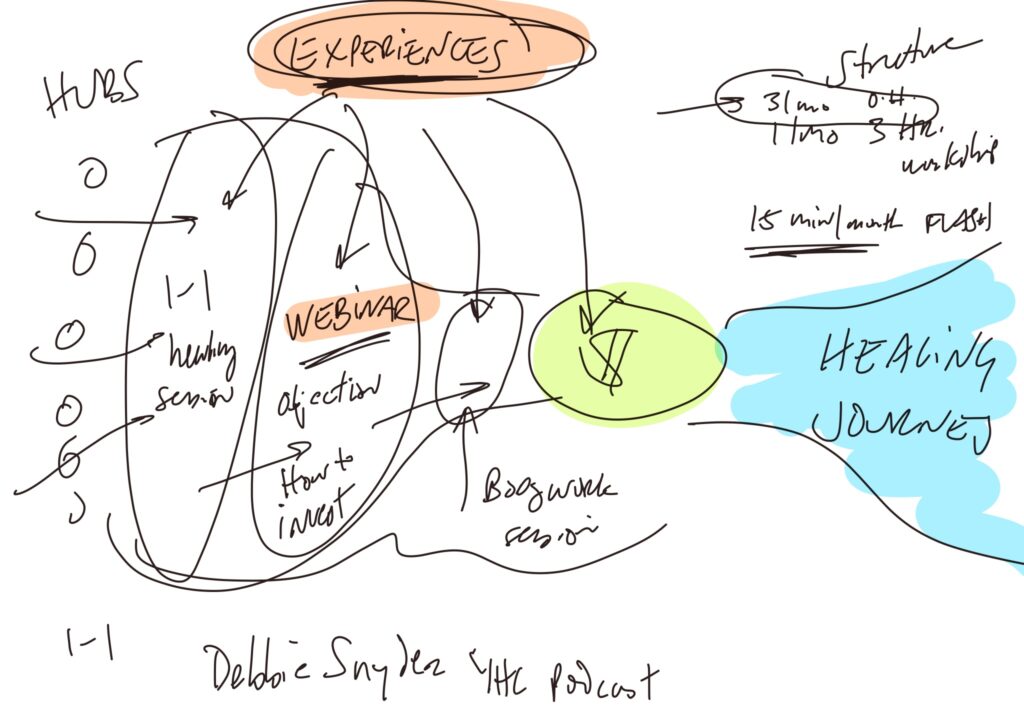 EXPERIENCES
HUBS
Structure
3/mo O.H.
1/mo 3 HR.
workship
15 min/month FLASH
1-1
healing
session
WEBINAR
objection
How to
invest
$
HEALING
JOURNEY
Bodywork
session
1-1
Debbie Snyder
Podcast